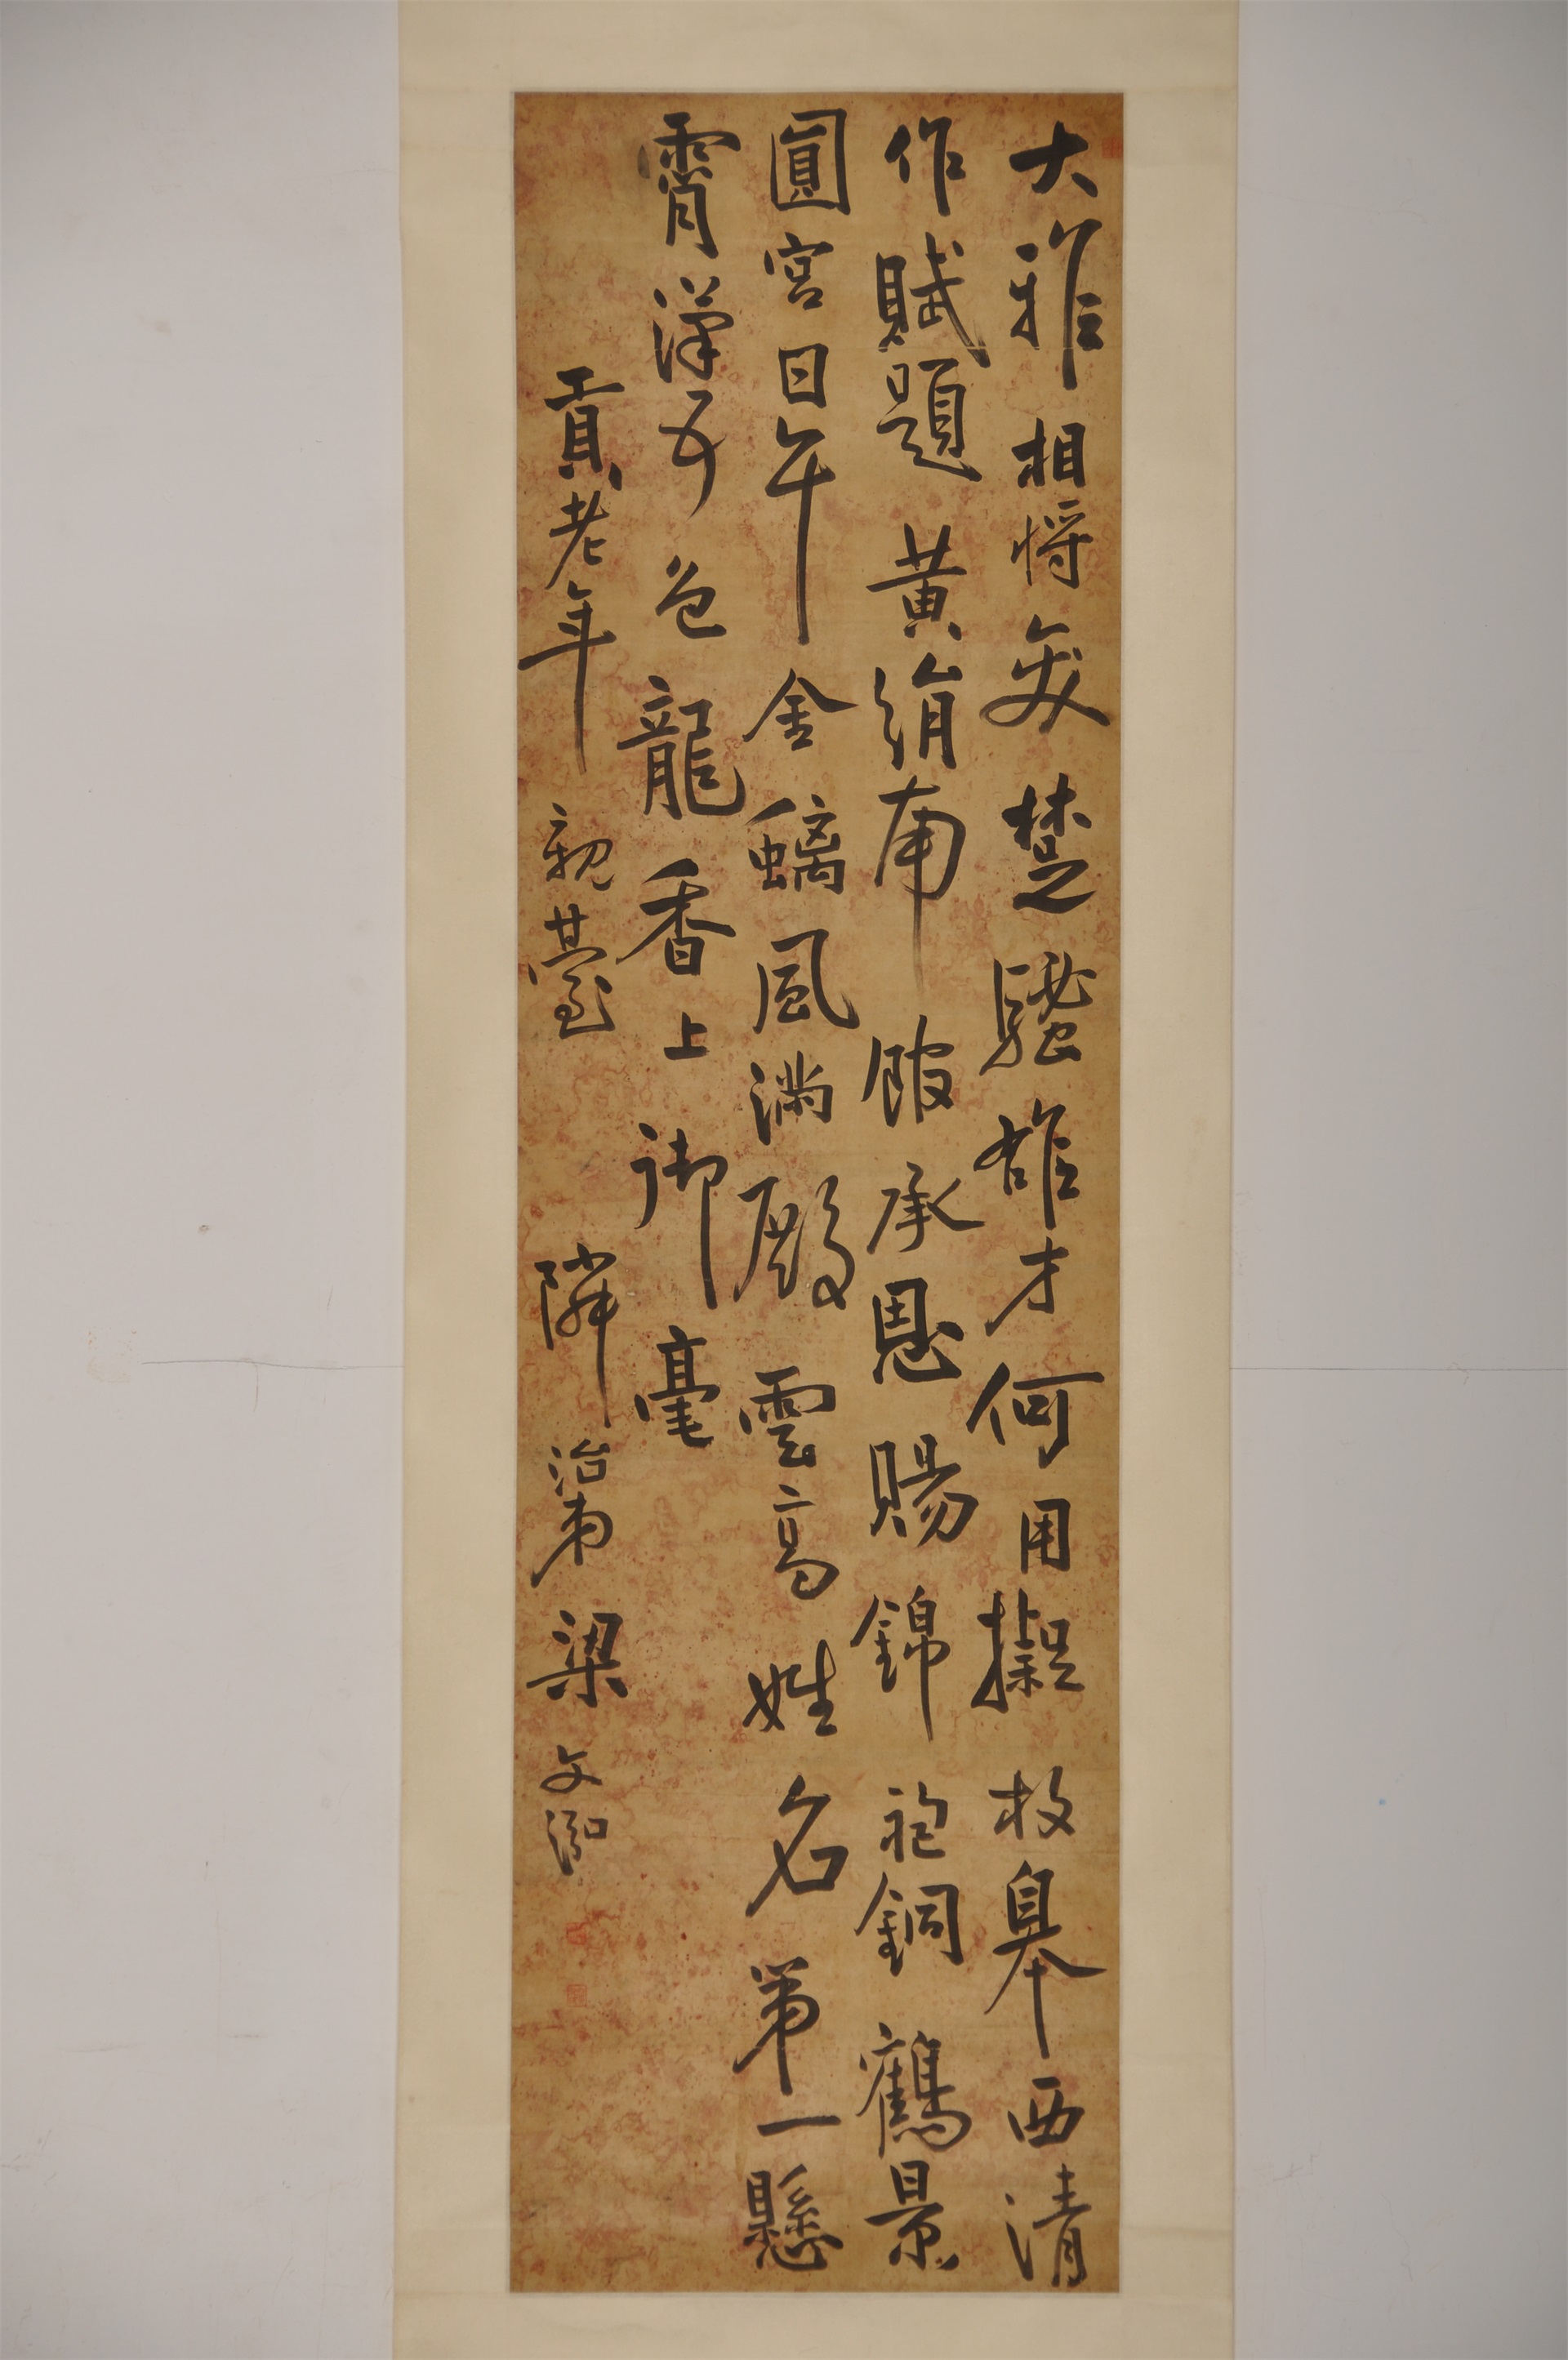 大雅相將楚騷雄才何用擬枚皋西清
作賦題黃絹南館承恩賜錦袍銅鶴景
圓宮日午金螭風滿殿雲高姓名第一懸
霄漢五色龍香上御毫
貢老年親臺 隣治弟梁文泓